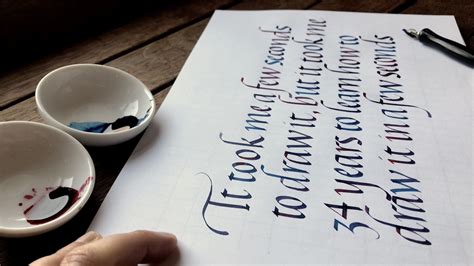 It took me a few seconds
to draw it, but it took me
34 years to learn how to
draw it in a few seconds